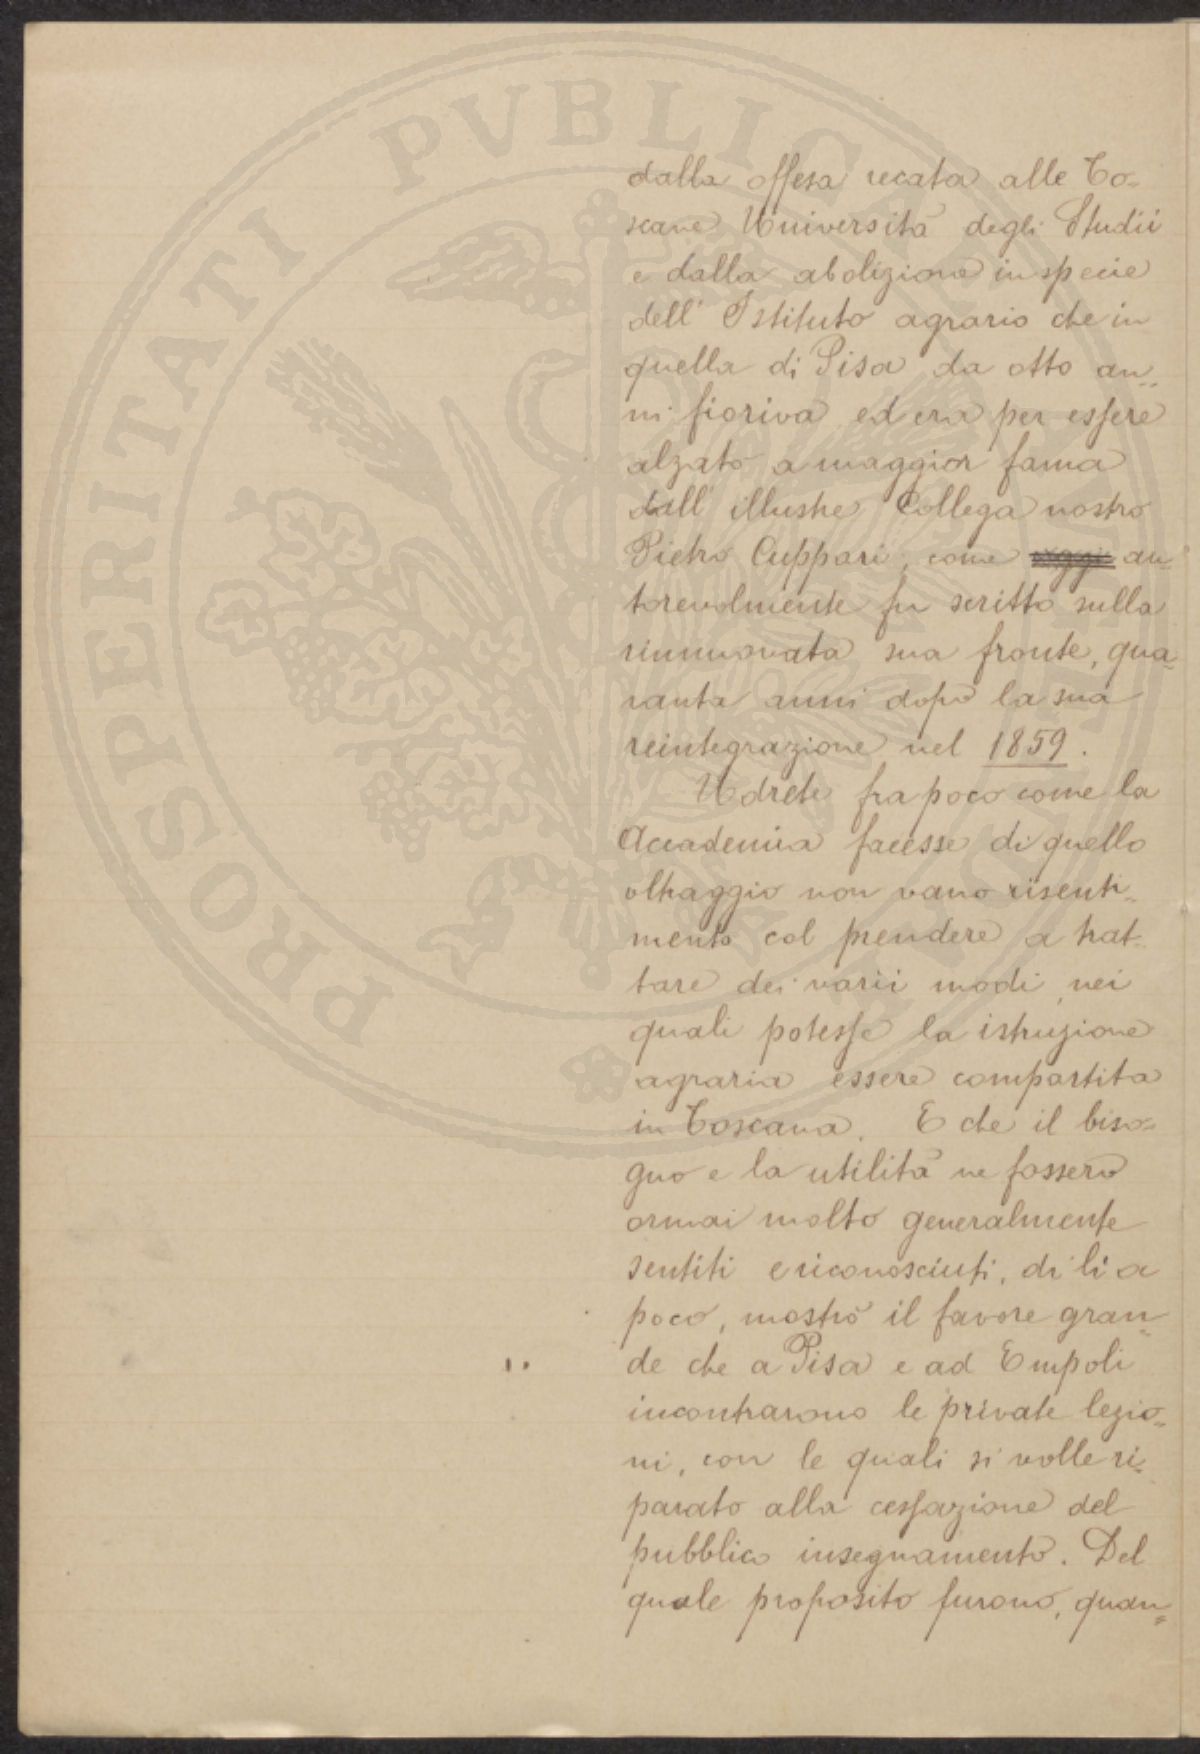 PROSPERITATI PVBLICAE
dalla offesa recata alle To-
scane Università degli Studii
e dalla abolizione in specie
dell' Istituto agrario che in
quella di Pisa da otto an-
ni fioriva ed era per essere
alzato a maggior fama
dall' illustre Collega nostro
Pietro Cuppari, come au-
torevolmente fu scritto sulla
rinnuovata sua fronte, qua-
ranta anni dopo la sua
reintegrazione nel 1859.
Udrete fra poco come la
Accademia facesse di quello
oltraggio non vano risenti-
mento col prendere a trat-
tare dei varii modi, nei
quali potesse la istruzione
agraria essere compartita
in Toscana. E che il biso-
gno e la utilità ne fossero
ormai molto generalmente
sentiti e riconosciuti, di lì a
poco, mostrò il favore gran-
de che a Pisa e ad Empoli
incontrarono le private lezio-
ni, con le quali si volle ri-
parato alla cessazione del
pubblico insegnamento. Del
quale proposito furono, quan-